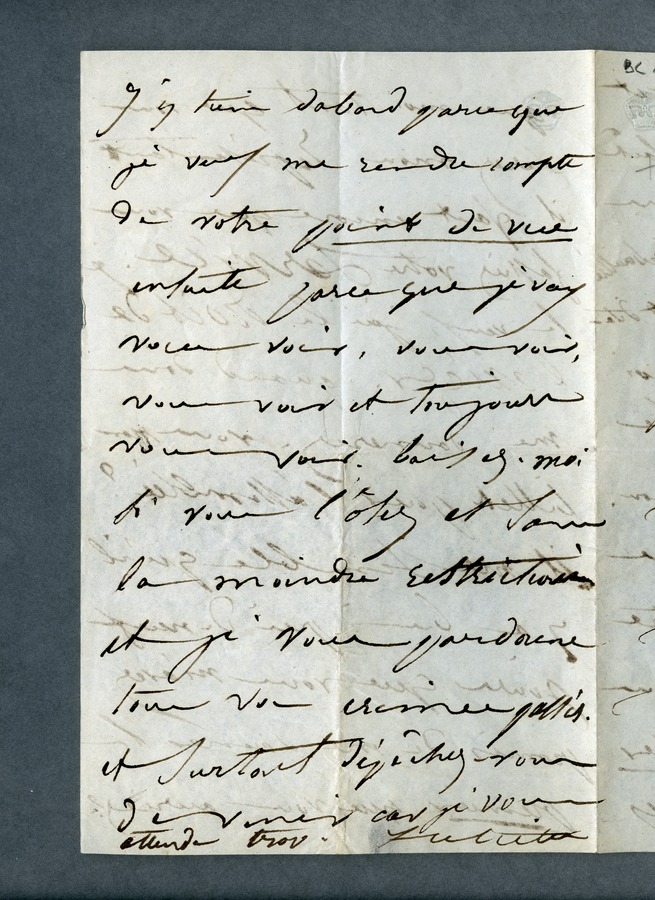 J'y tiens d'abord parce que
je veux me rendre compte
de votre point de vue
ensuite parce que je vay
vous voir, vous voir,
vous voir et toujours
vous voir. baisez-moi
si vous l'osez et sans
la moindre restriction
et je vous pardonne
tous vos crimes passés.
et surtout dépêchez-vous
de venir car je vous
attends trop. Juliette